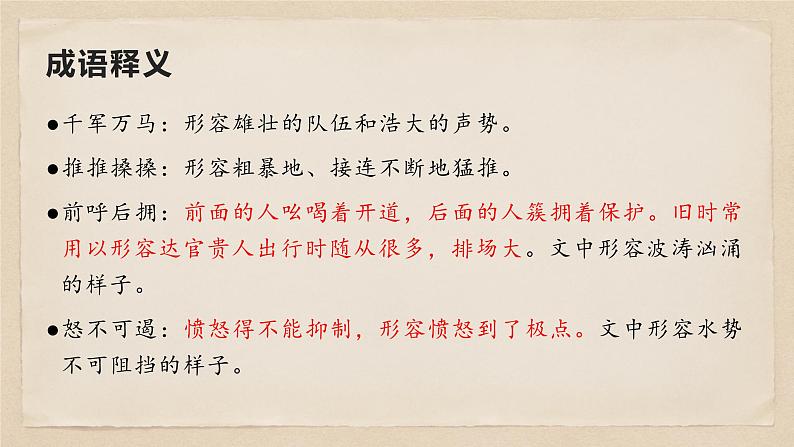 成语释义
●千军万马：形容雄壮的队伍和浩大的声势。
●推推搡搡：形容粗暴地、接连不断地猛推。
●前呼后拥：前面的人吆喝着开道，后面的人簇拥着保护。旧时常
用以形容达官贵人出行时随从很多，排场大。文中形容波涛汹涌
的样子。
●怒不可遏：愤怒得不能抑制，形容愤怒到了极点。文中形容水势
不可阻挡的样子。